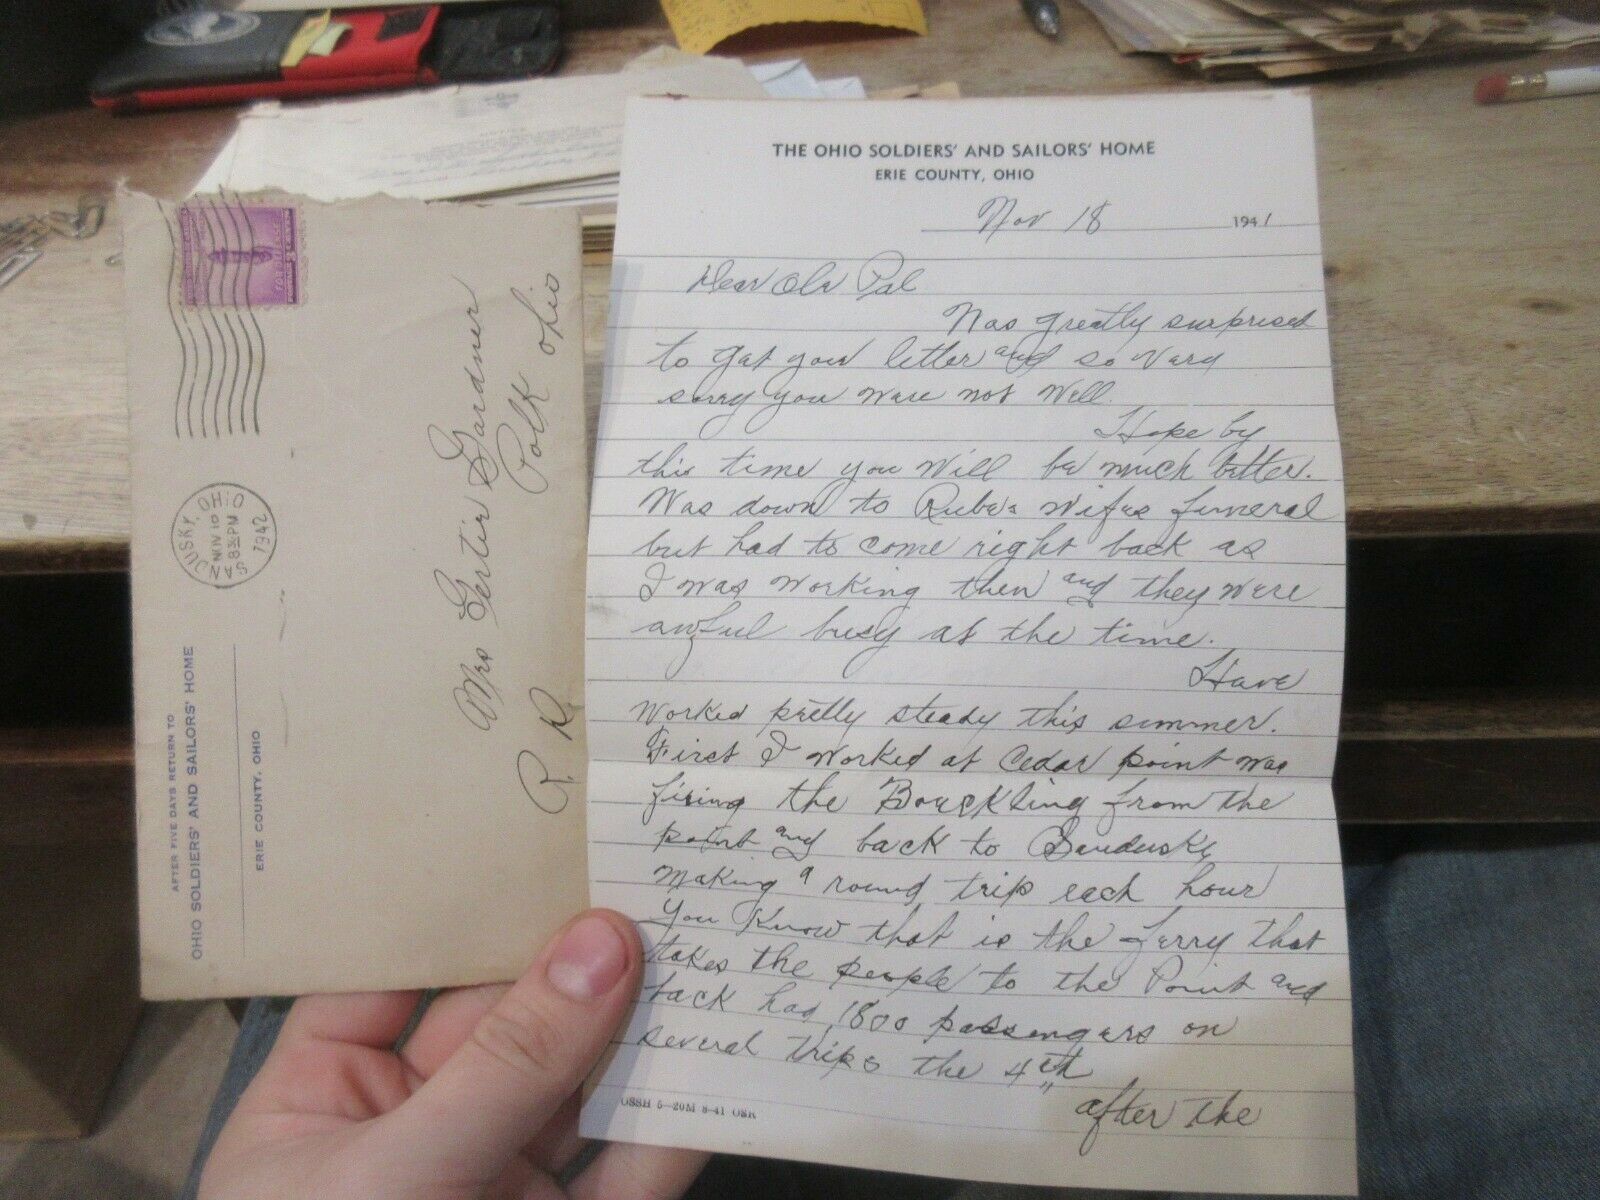 THE OHIO SOLDIERS' AND SAILORS' HOME
ERIE COUNTY, OHIO
Nov 18 1941
Dear Ole Pal
Was greatly surprised
to get your letter and so very
sorry you were not well.
Hope by
this time you will be much better.
Was down to Rube's wifes funeral
but had to come right back as
I was working then and they were
awful busy at the time.
Have
worked pretty steady this summer.
First I worked at Cedar point was
firing the Boeckling from the
point and back to Sandusky
making a round trip each hour
You know that is the ferry that
takes the people to the Point and
back had 1800 passengers on
several trips the 4th
after the
OSSH 5-20M 8-41 OSR
SANDUSKY, OHIO
8 30 PM
1942
Mrs Gertie Gardner
Polk Ohio
R. D.
AFTER FIVE DAYS RETURN TO
OHIO SOLDIERS' AND SAILORS' HOME
ERIE COUNTY, OHIO